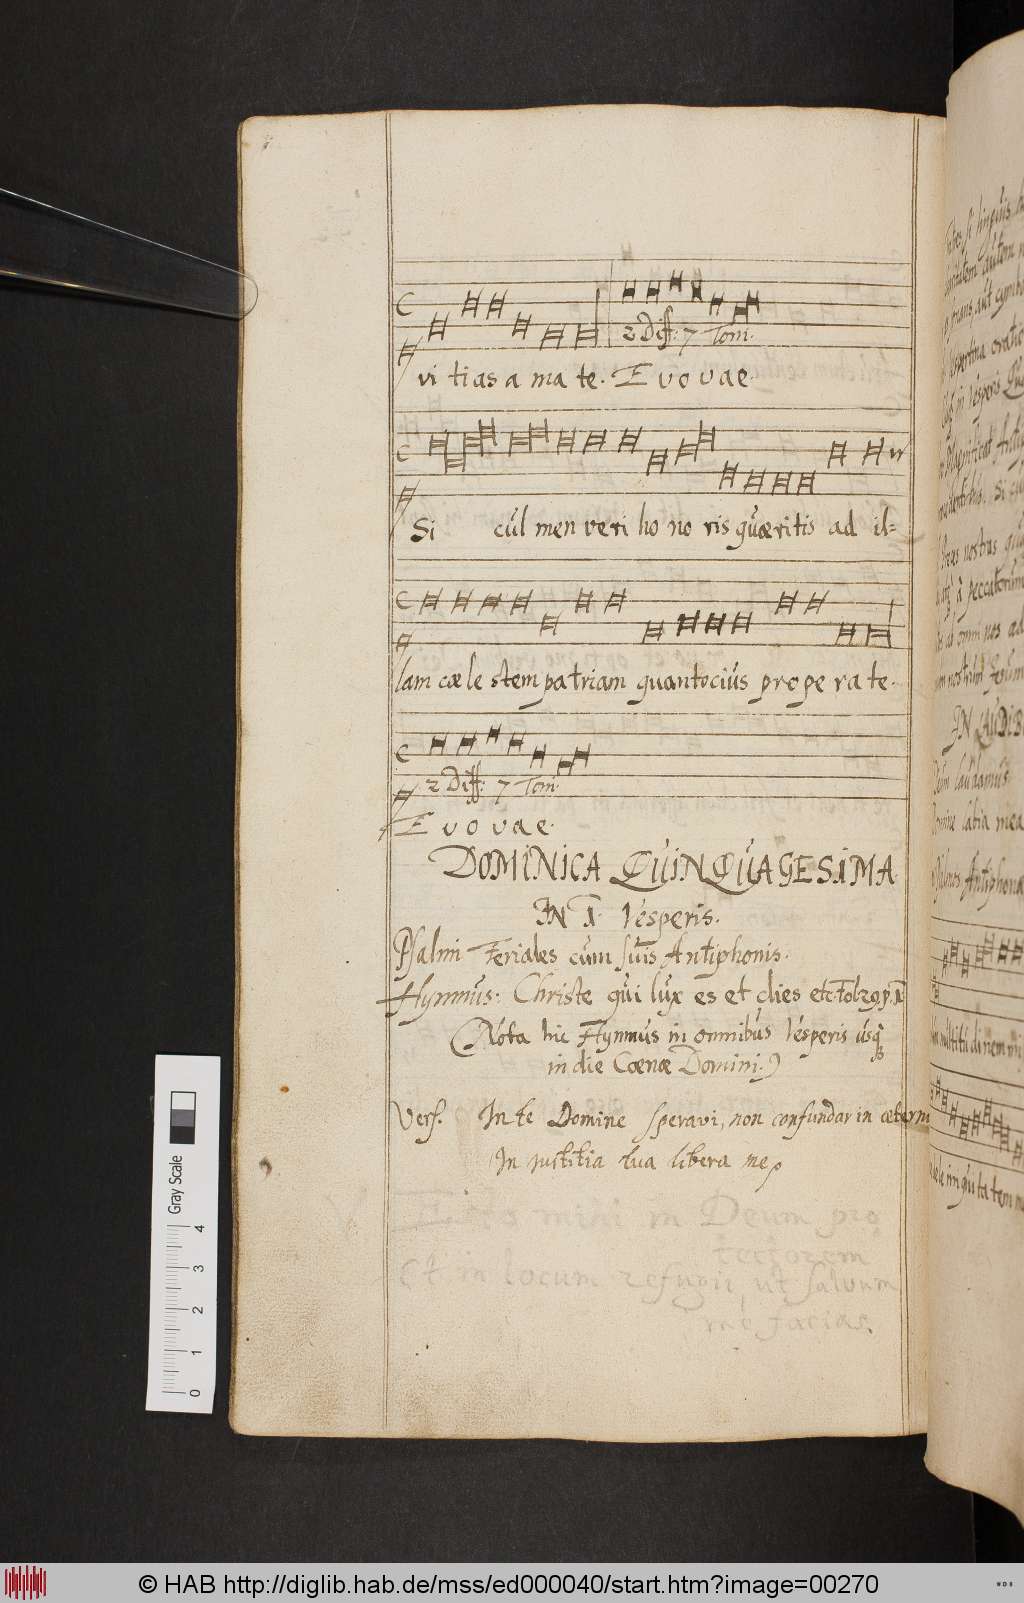 2 Diff: 7 Tom.
vi tias a ma te. E vo vae.
Si cul men veri ho no ris quæritis ad il=
lam cæle stem patriam quantocius prope ra te.
2 Diff: 7 Tom.
E vo vae.
DOMINICA QUINQUAGESIMA
IN I. Vesperis.
Psalmi Feriales cum suis Antiphonis.
Hymnus: Christe qui lux es et dies etc. fol. 29. p. 1
(Nota hic Hymnus in omnibus Vesperis usq
in die Cœnæ Domini.)
Vers. In te Domine speravi, non confundar in ætern
In justitia tua libera me
V Esto mihi in Deum pro
tectorem
Et in locum refugii, ut salvum
me facias.
IN
Antiphona
Gray Scale
0 1 2 3 4
© HAB http://diglib.hab.de/mss/ed000040/start.htm?image=00270